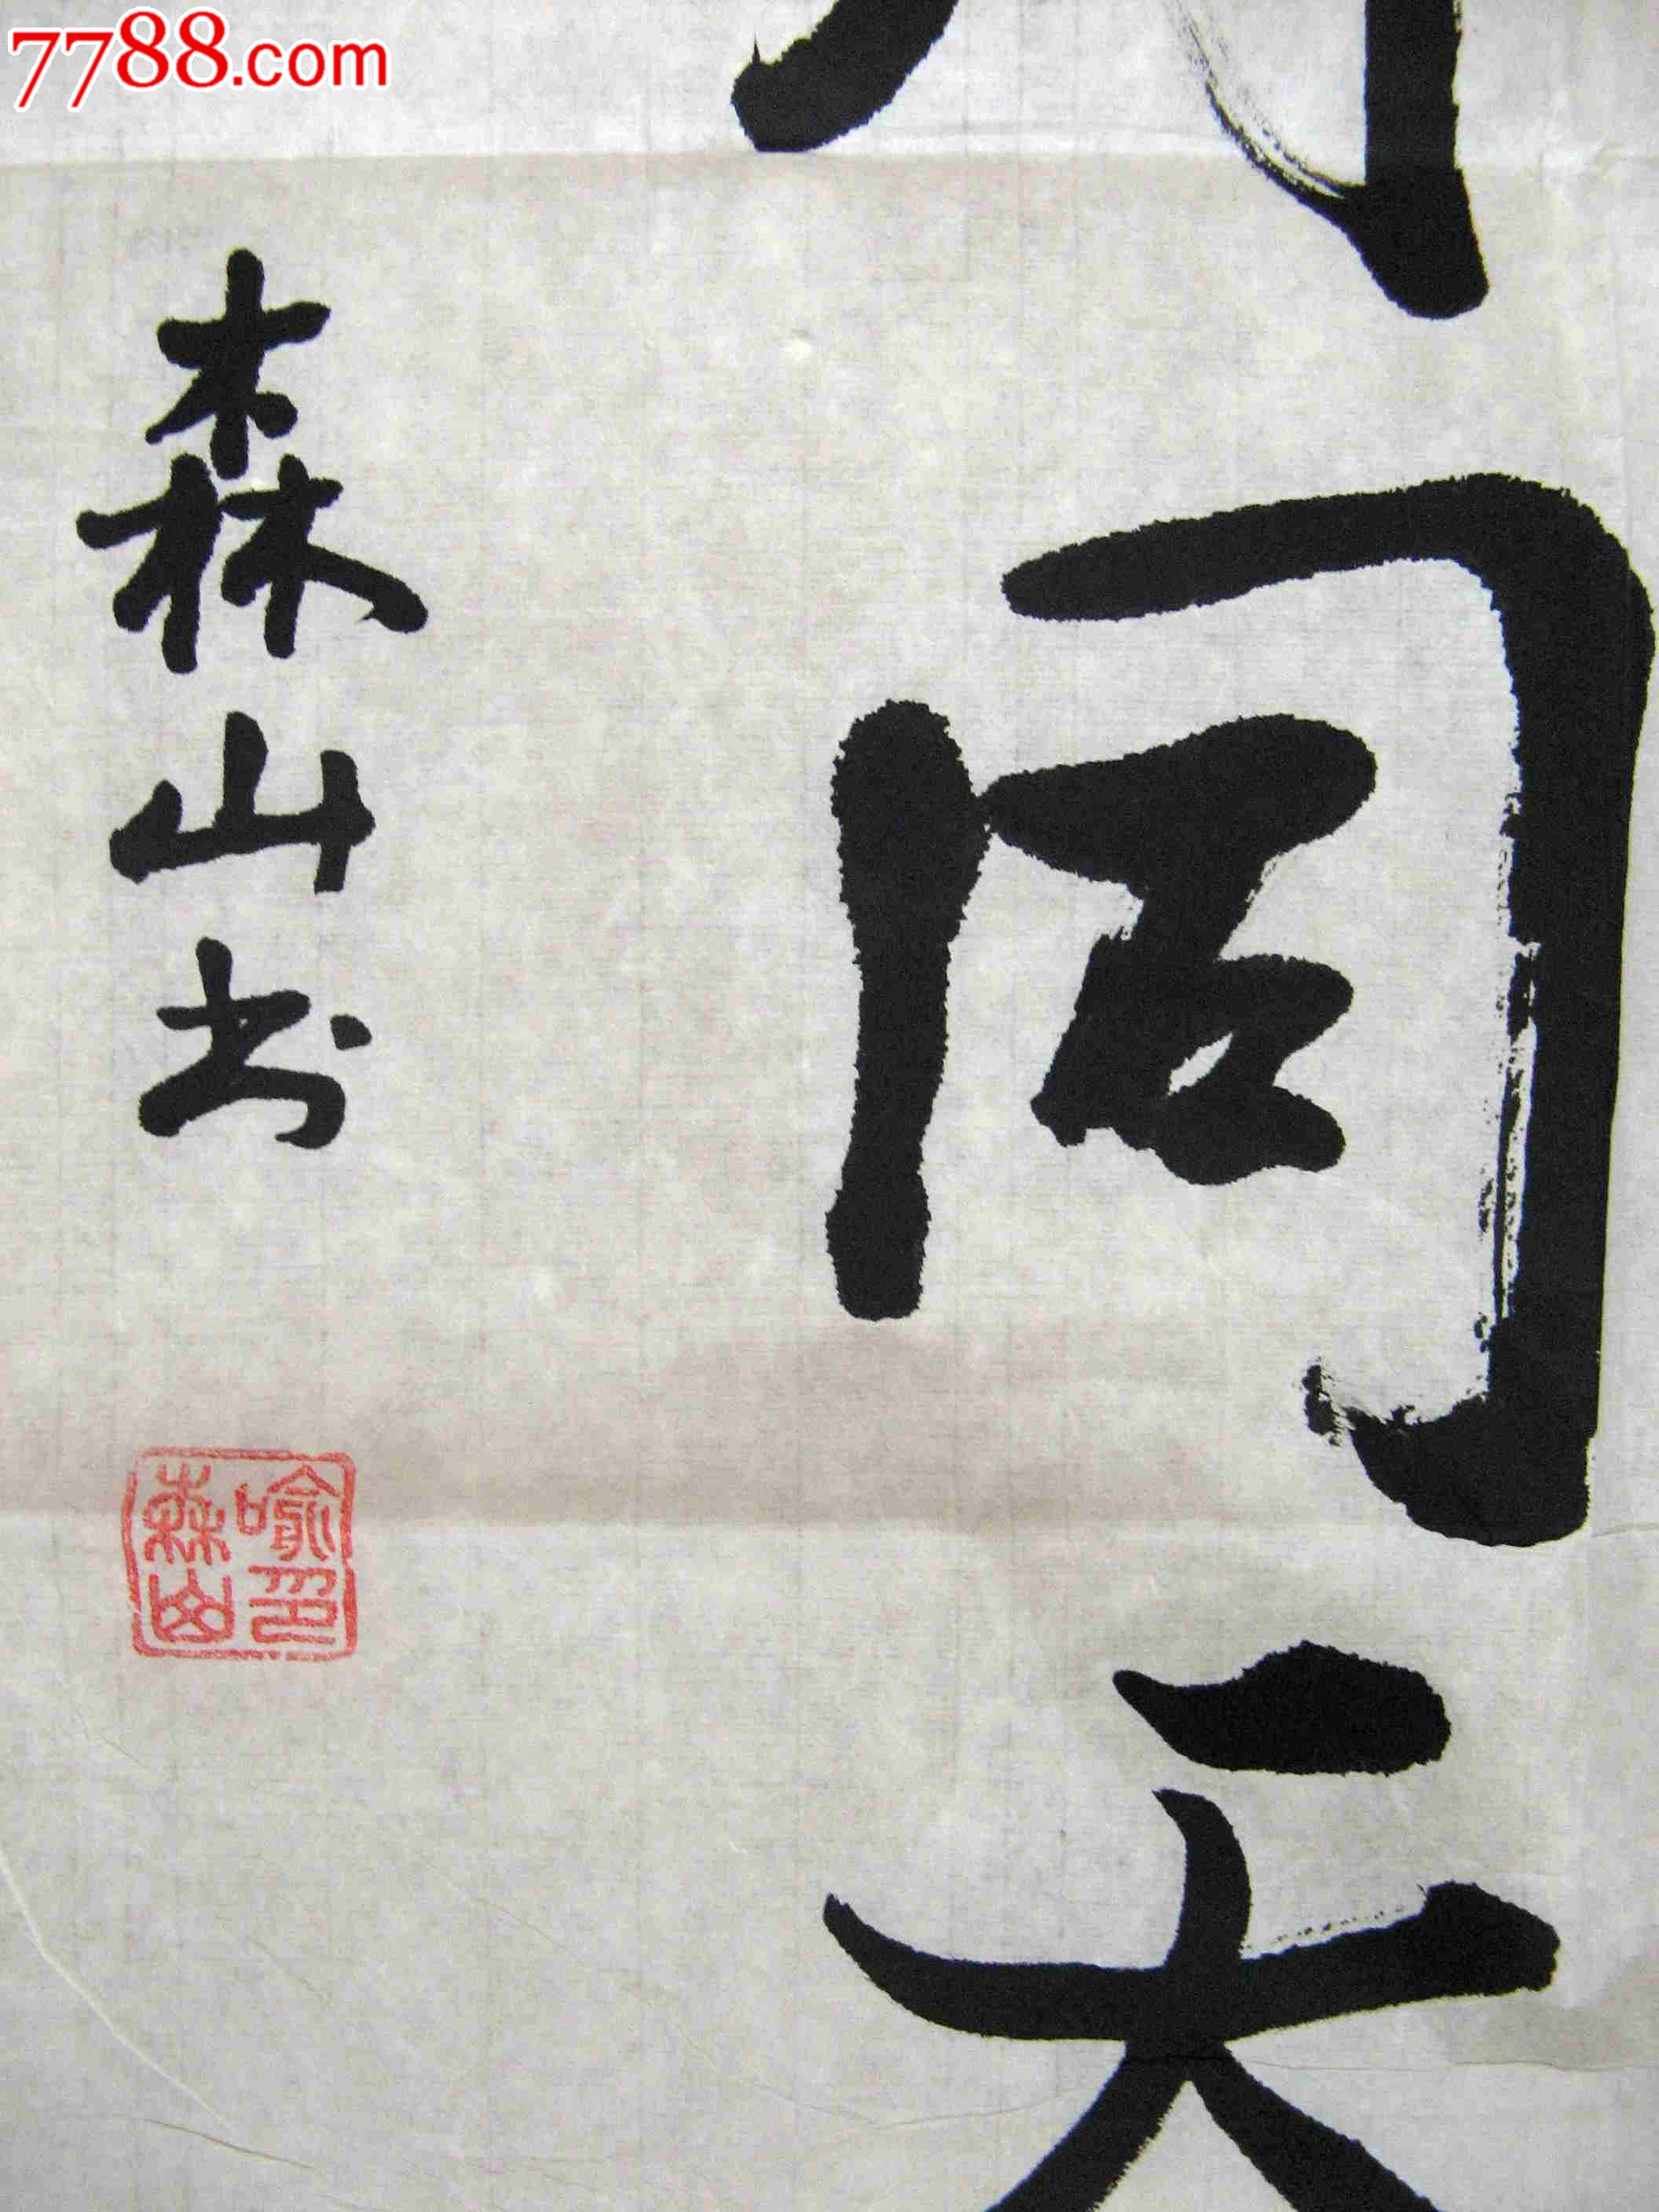 7788.com
同天
森山书
喻森山印